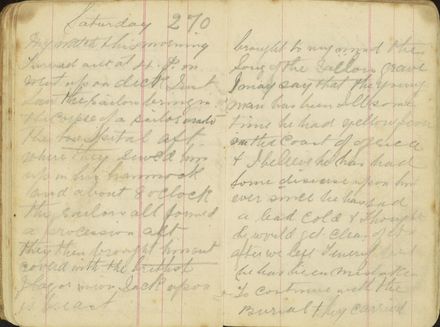 Saturday 270
My watch this morning
Turned out at 4 P. m
went up on deck Just
saw the sailors bring in
the corpse of a sailor mate
the hospital aft.
where they sewed him
up in his hammock
and about 6 oclock
the sailors all formed
a procession aft
they then brought him out
covered with the british
flag or union Jack of
is
brought to my mind the
Song of the Sailors grave
I may say that the young
man has been ill some
time he had yellow fever
on the Coast of africa
& I believe he has had
some disease upon him
ever since he has had
a bad cold & thought
he would get clear of it
after we left
he has been mistaken
To continue with the
Burial they carried